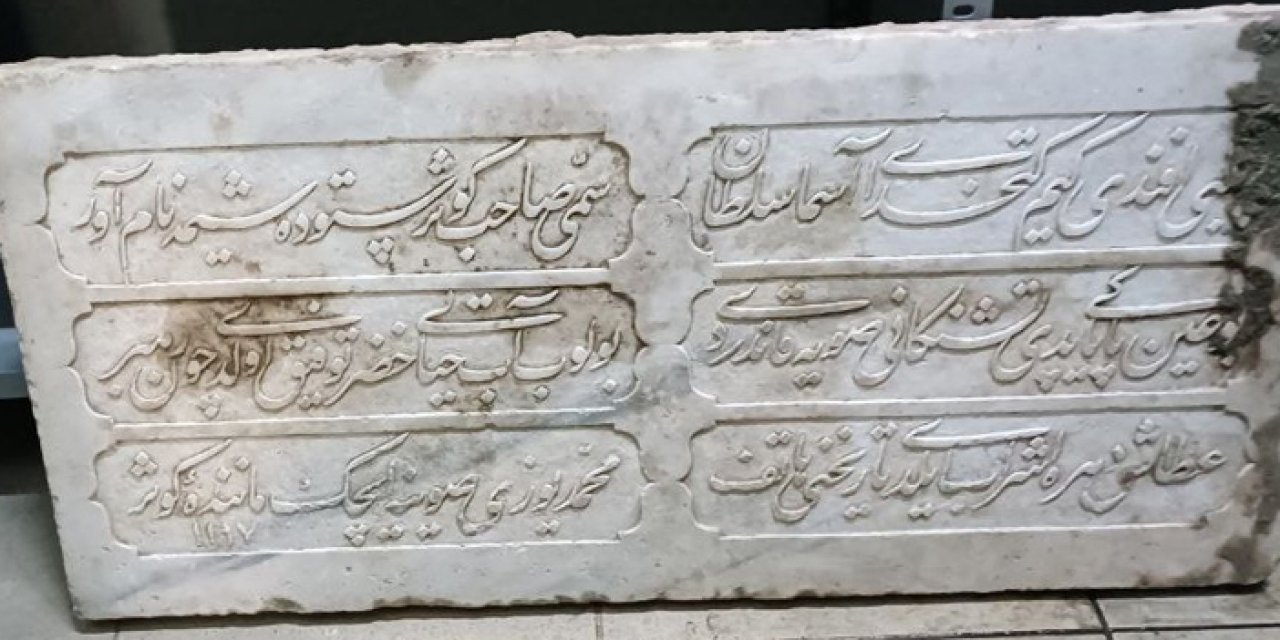 افندی کیم کتخدای آسما سلطان
سمی صاحب کوثر ستوده شیمه نام آور
عین پاپایدی تشنکانی صویه قاندردی
بولوب آب حیاتی خضر توفیق اولدی چون رهبر
عطاشه مژده لشرب ایلدی تاریخنی هاتف
محمد یوزی صوینه ایچک ماننده کوثر
۱۱۹۷